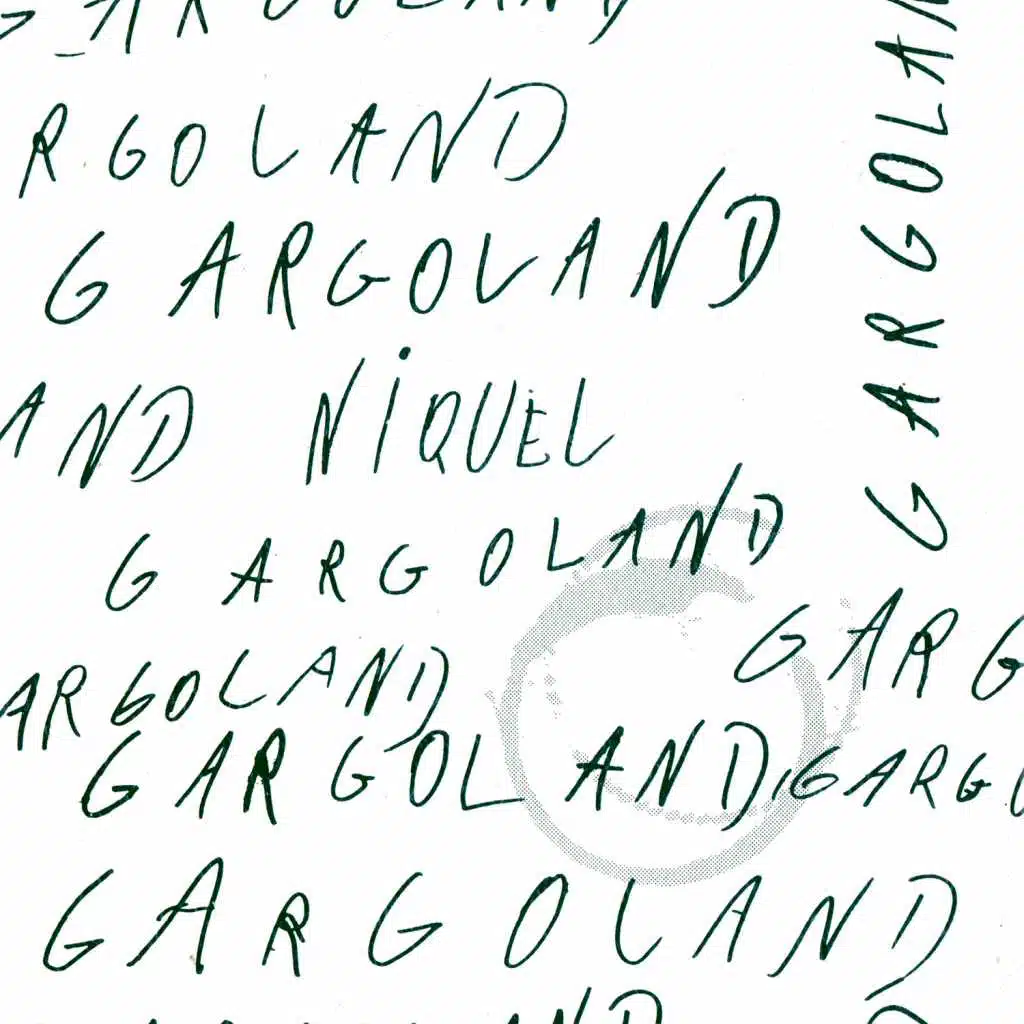 GARGOLAND
RGOLAND
GARGOLAND
AND NiQUEL
GARGOLAND
GARGOLAN
GARG
ARGOLAND
GARGOLAND
GARGO
GARGOLAND